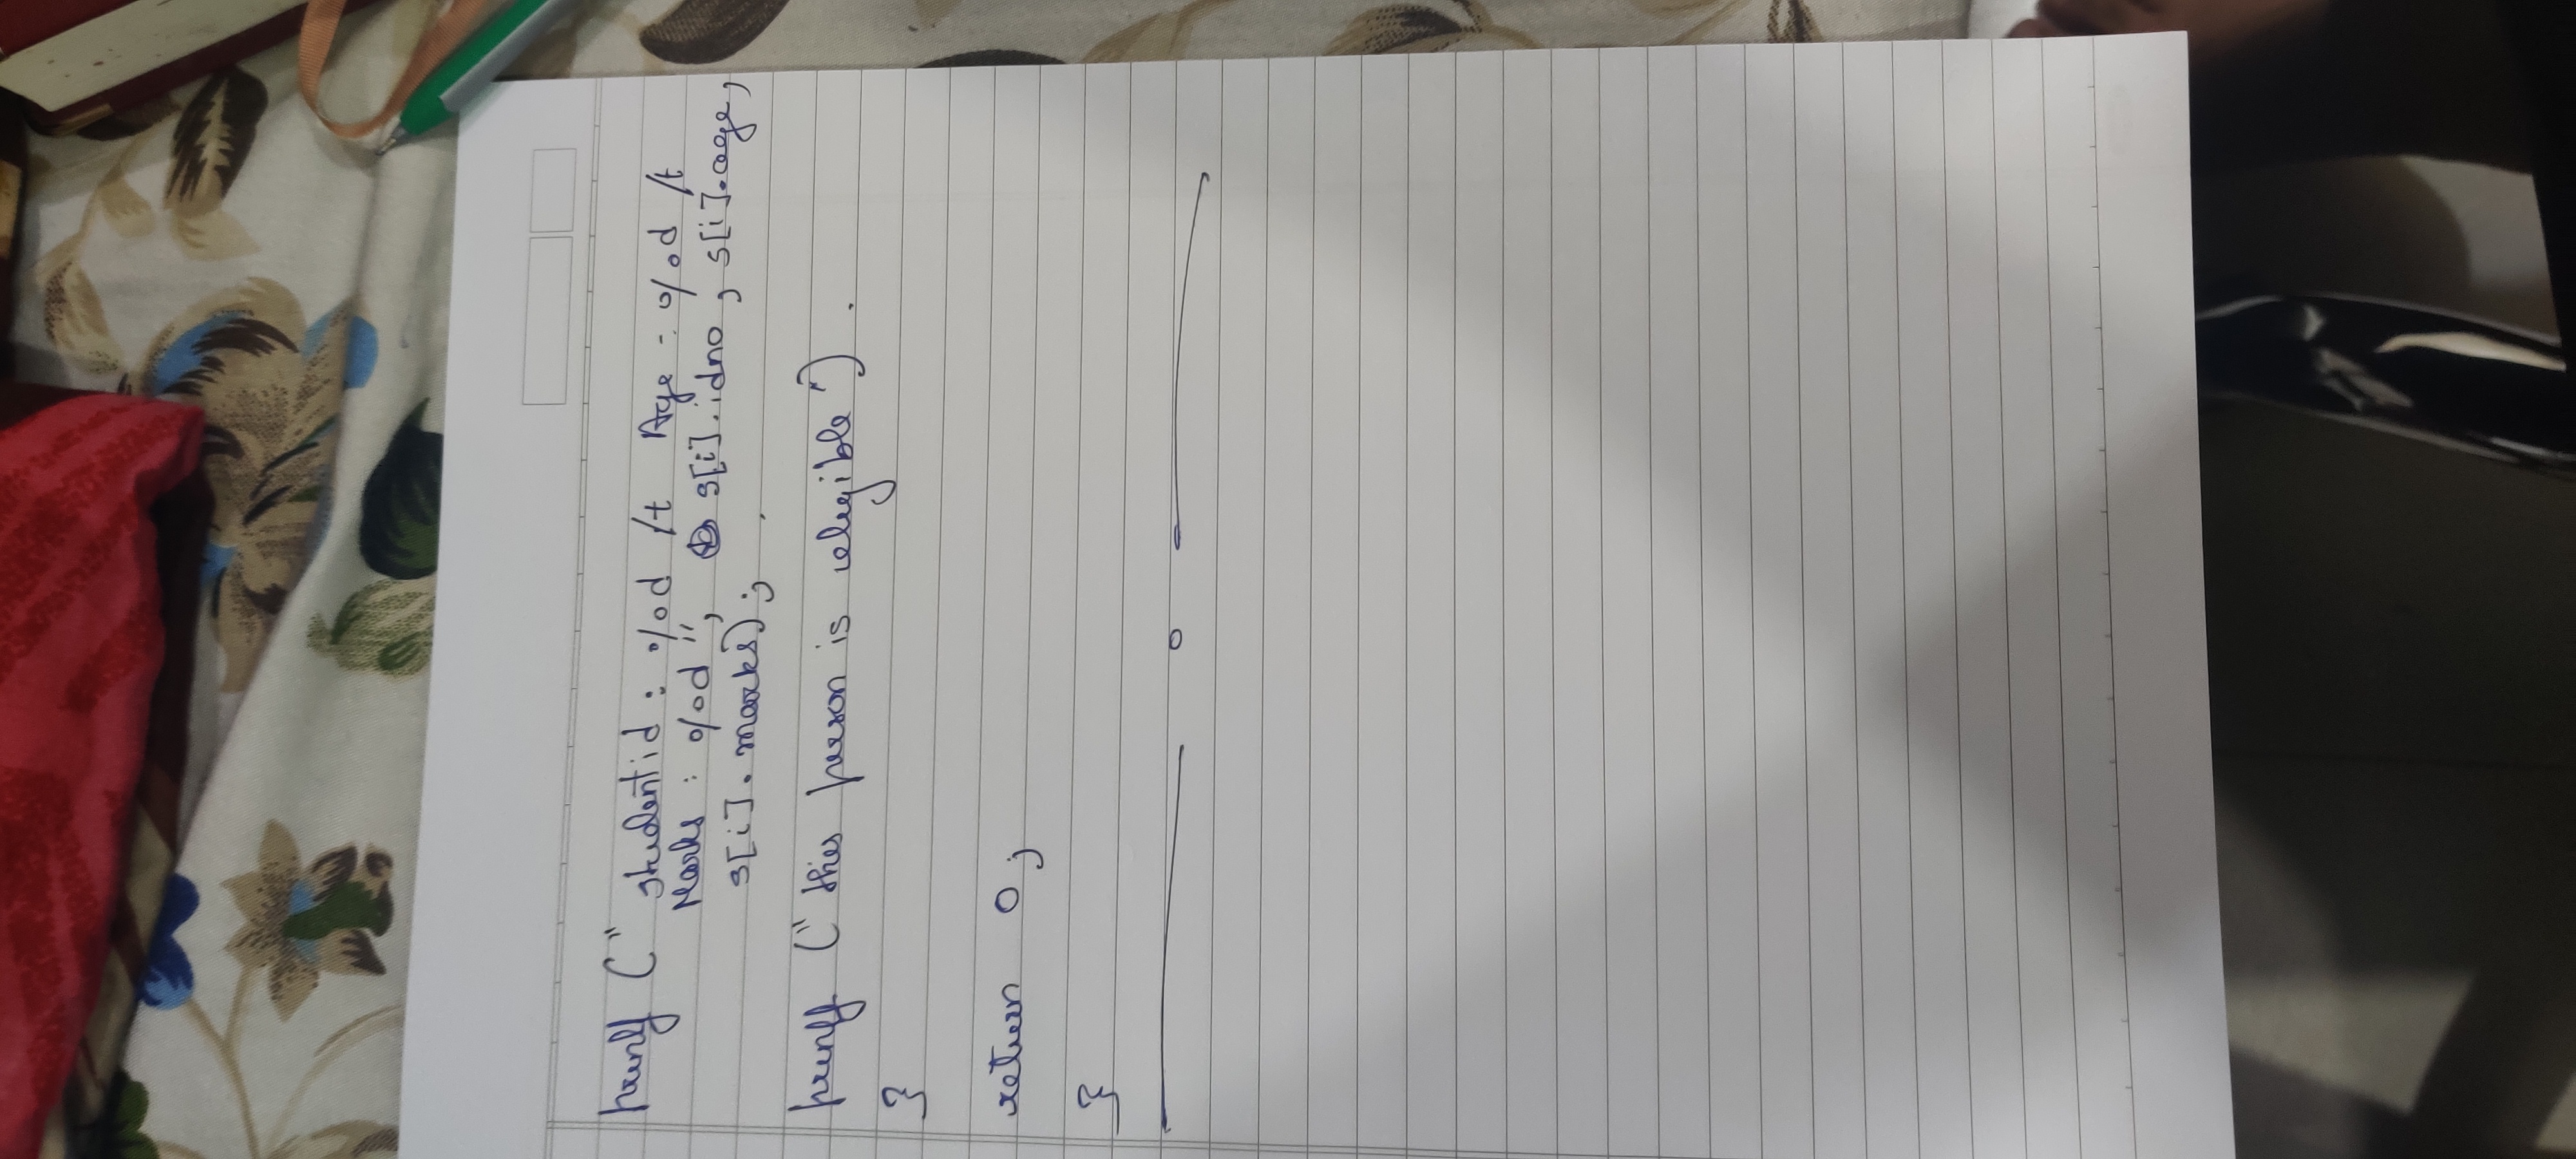 printf (" studentid : %d /t Age : %d /t
Marks : %d ", s[i].idno, s[i].age,
s[i].marks);
printf (" this person is eligible ") .
}
return 0;
}